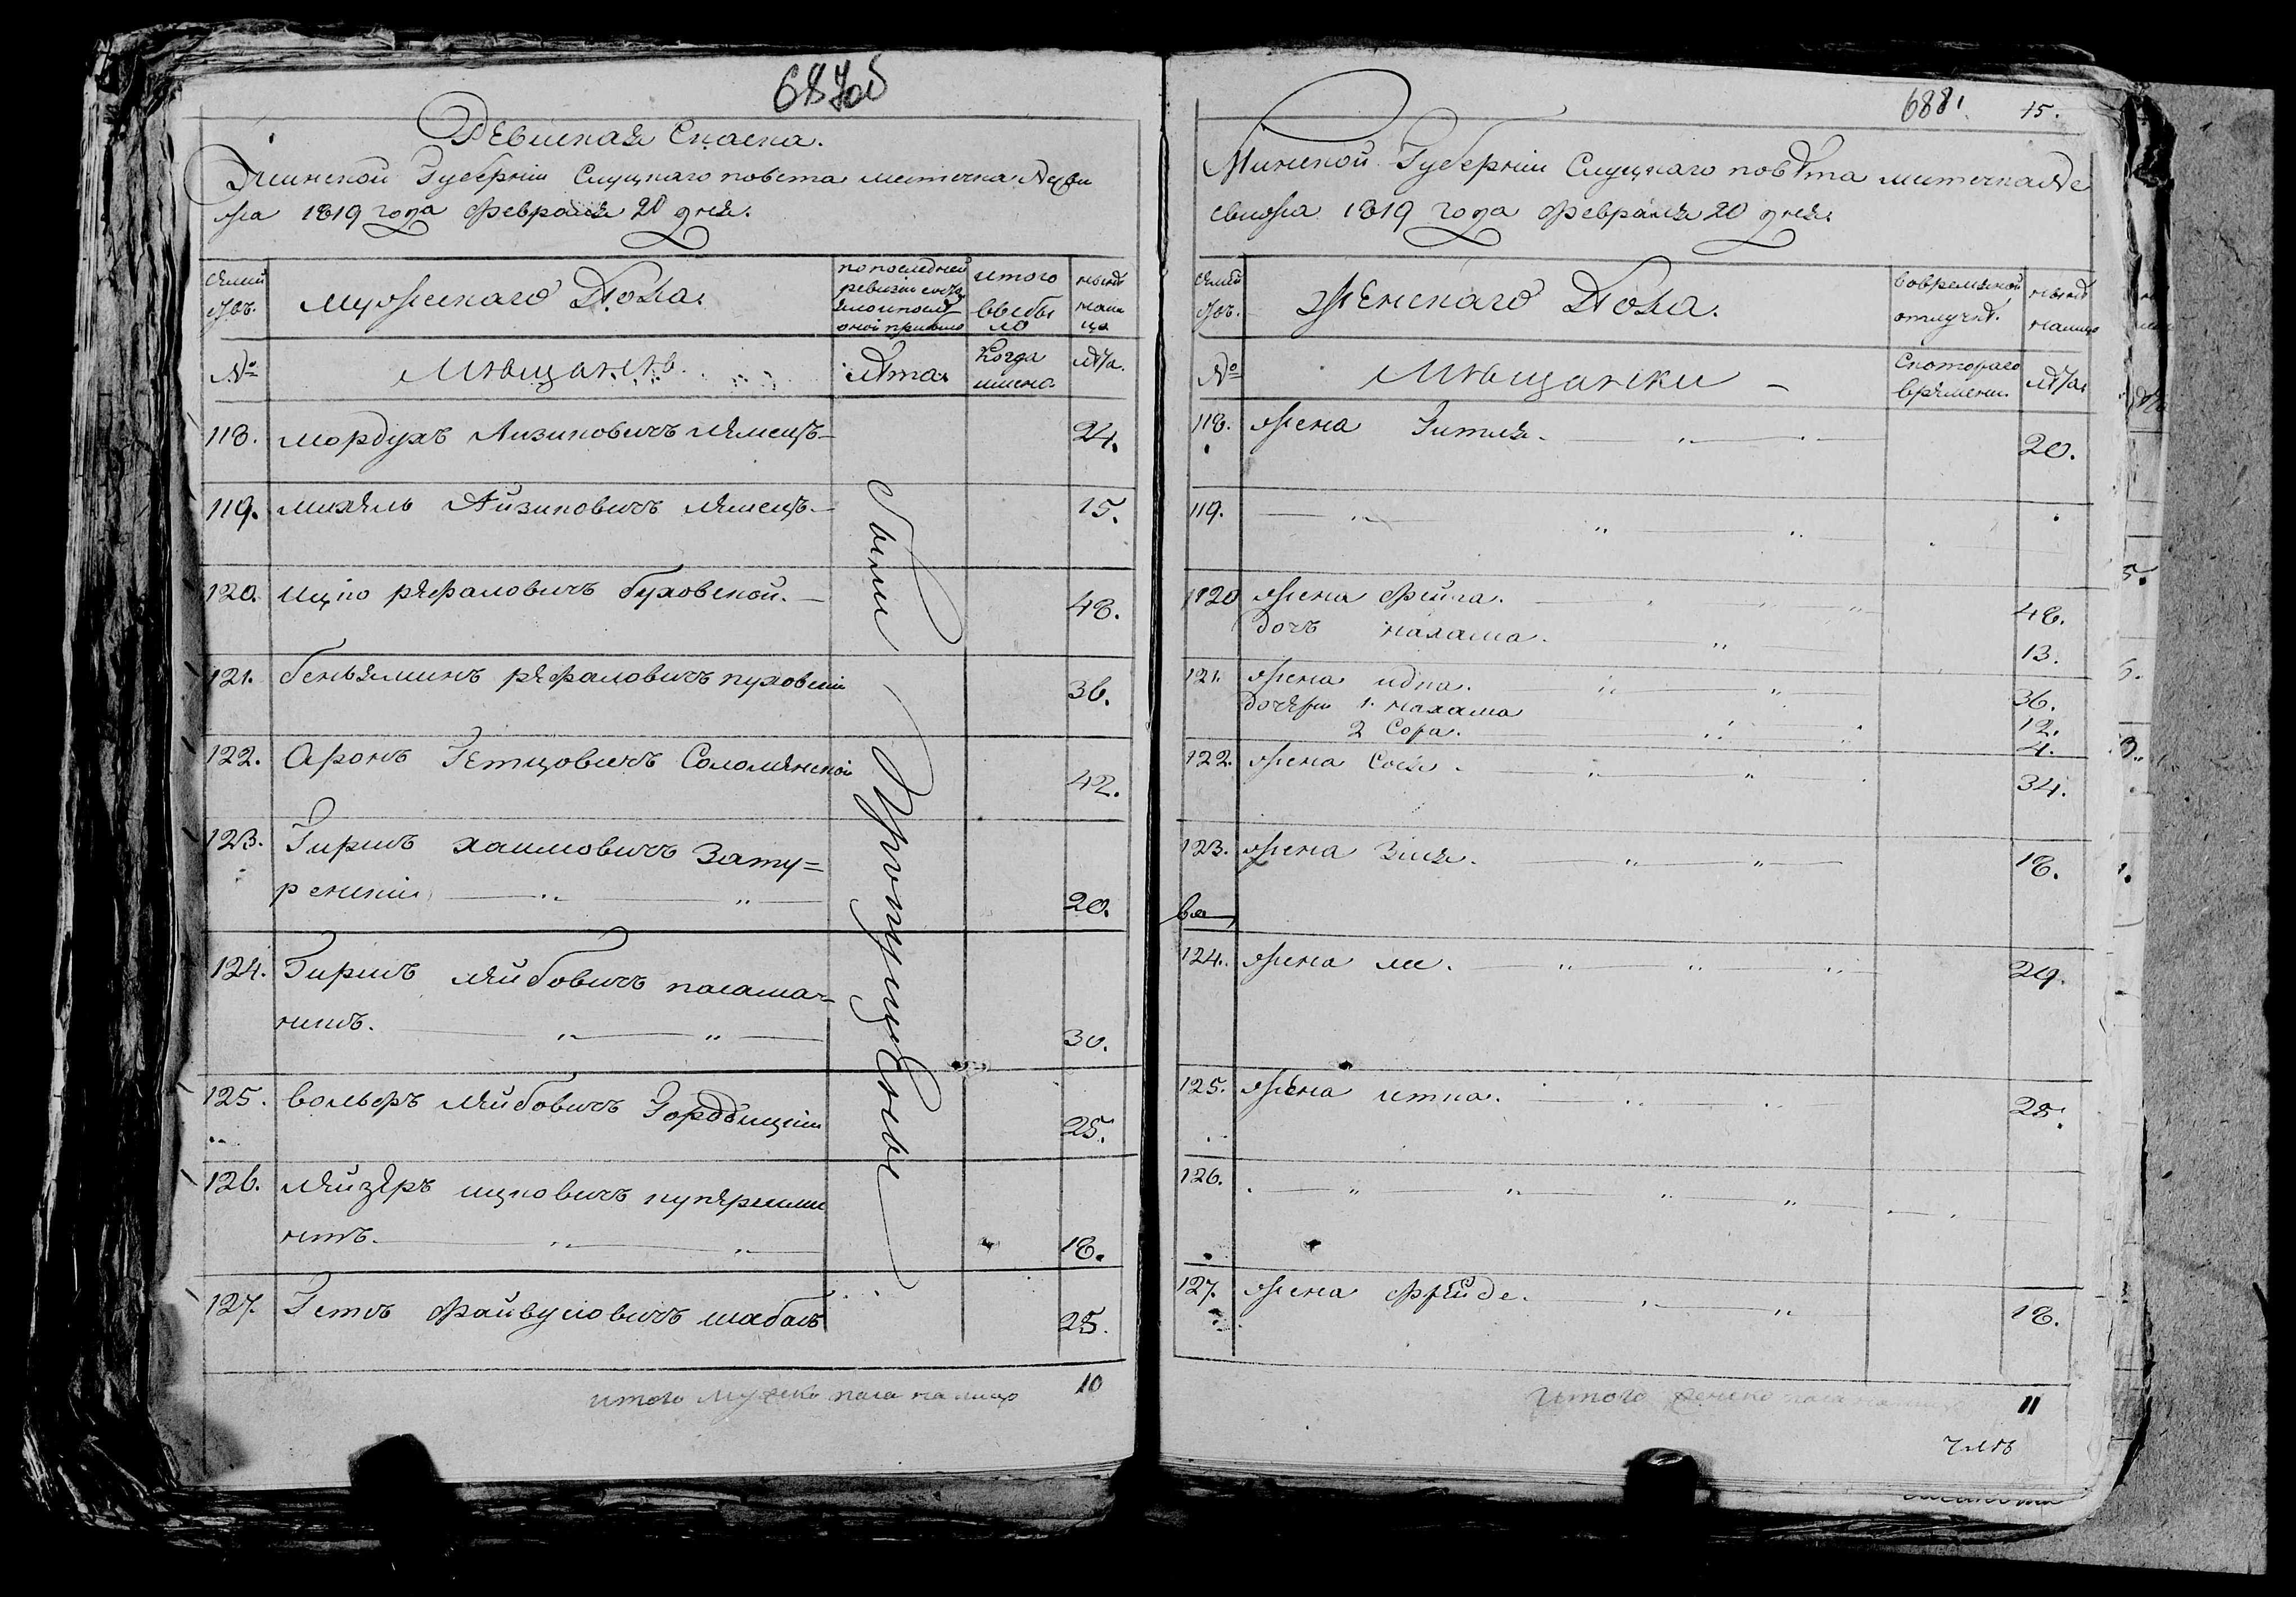 687об
Ревиская Скаска.
Минской Губерніи Слуцкаго повета местечка Несви
жа 1819 года февраля 20 дня.
Семьи
мужескаго Пола.
по последней
ревизіи
итого
выбы
ло
ныне
нали
цо
№
Мещанъ
Лета
Когда
имено
лета.
118. мордухъ Аизиковичъ лемецъ 24.
119. михель Айзиковичъ лемецъ 15.
120. ицко рефаловичъ буховской. 48.
121. беньяминъ рефаловичъ пуховскій 36.
122. Аронъ Гетцовичъ Соломянской 42.
123. Гиршъ хаимовичъ Зату=
ренскій 20.
124. Гиршъ лейбовичъ касамач-
никъ. 30.
125. вольфъ лейбовичъ Городыщскій 25.
126. лейзеръ ицковичъ куперши
нкъ. 18.
127. Гетцъ файвусовичъ шабасъ 25.
были пропущенные
итого мужска пола налицо 10
688. 15.
Минской Губерніи Слуцкаго повѣта местечка Не
свижа 1819 года февраля 20 дня.
Семьи
женскаго Пола.
вовременной
отлучке.
ныне
налицо
№
Мещанки
Скотораго
времени.
лета
118. жена Гитля. 20.
119.
120 жена фейга. 48.
дочъ нахама. 13.
121. жена идка. 36.
дочери 1. нахама 12.
2 Сора. 4.
122. жена Сося. 34.
123. жена Зися. 18.
124. жена ле. 29.
125. жена итка. 25.
126.
127. жена фрейде. 18.
Итого женска пола налицо 11